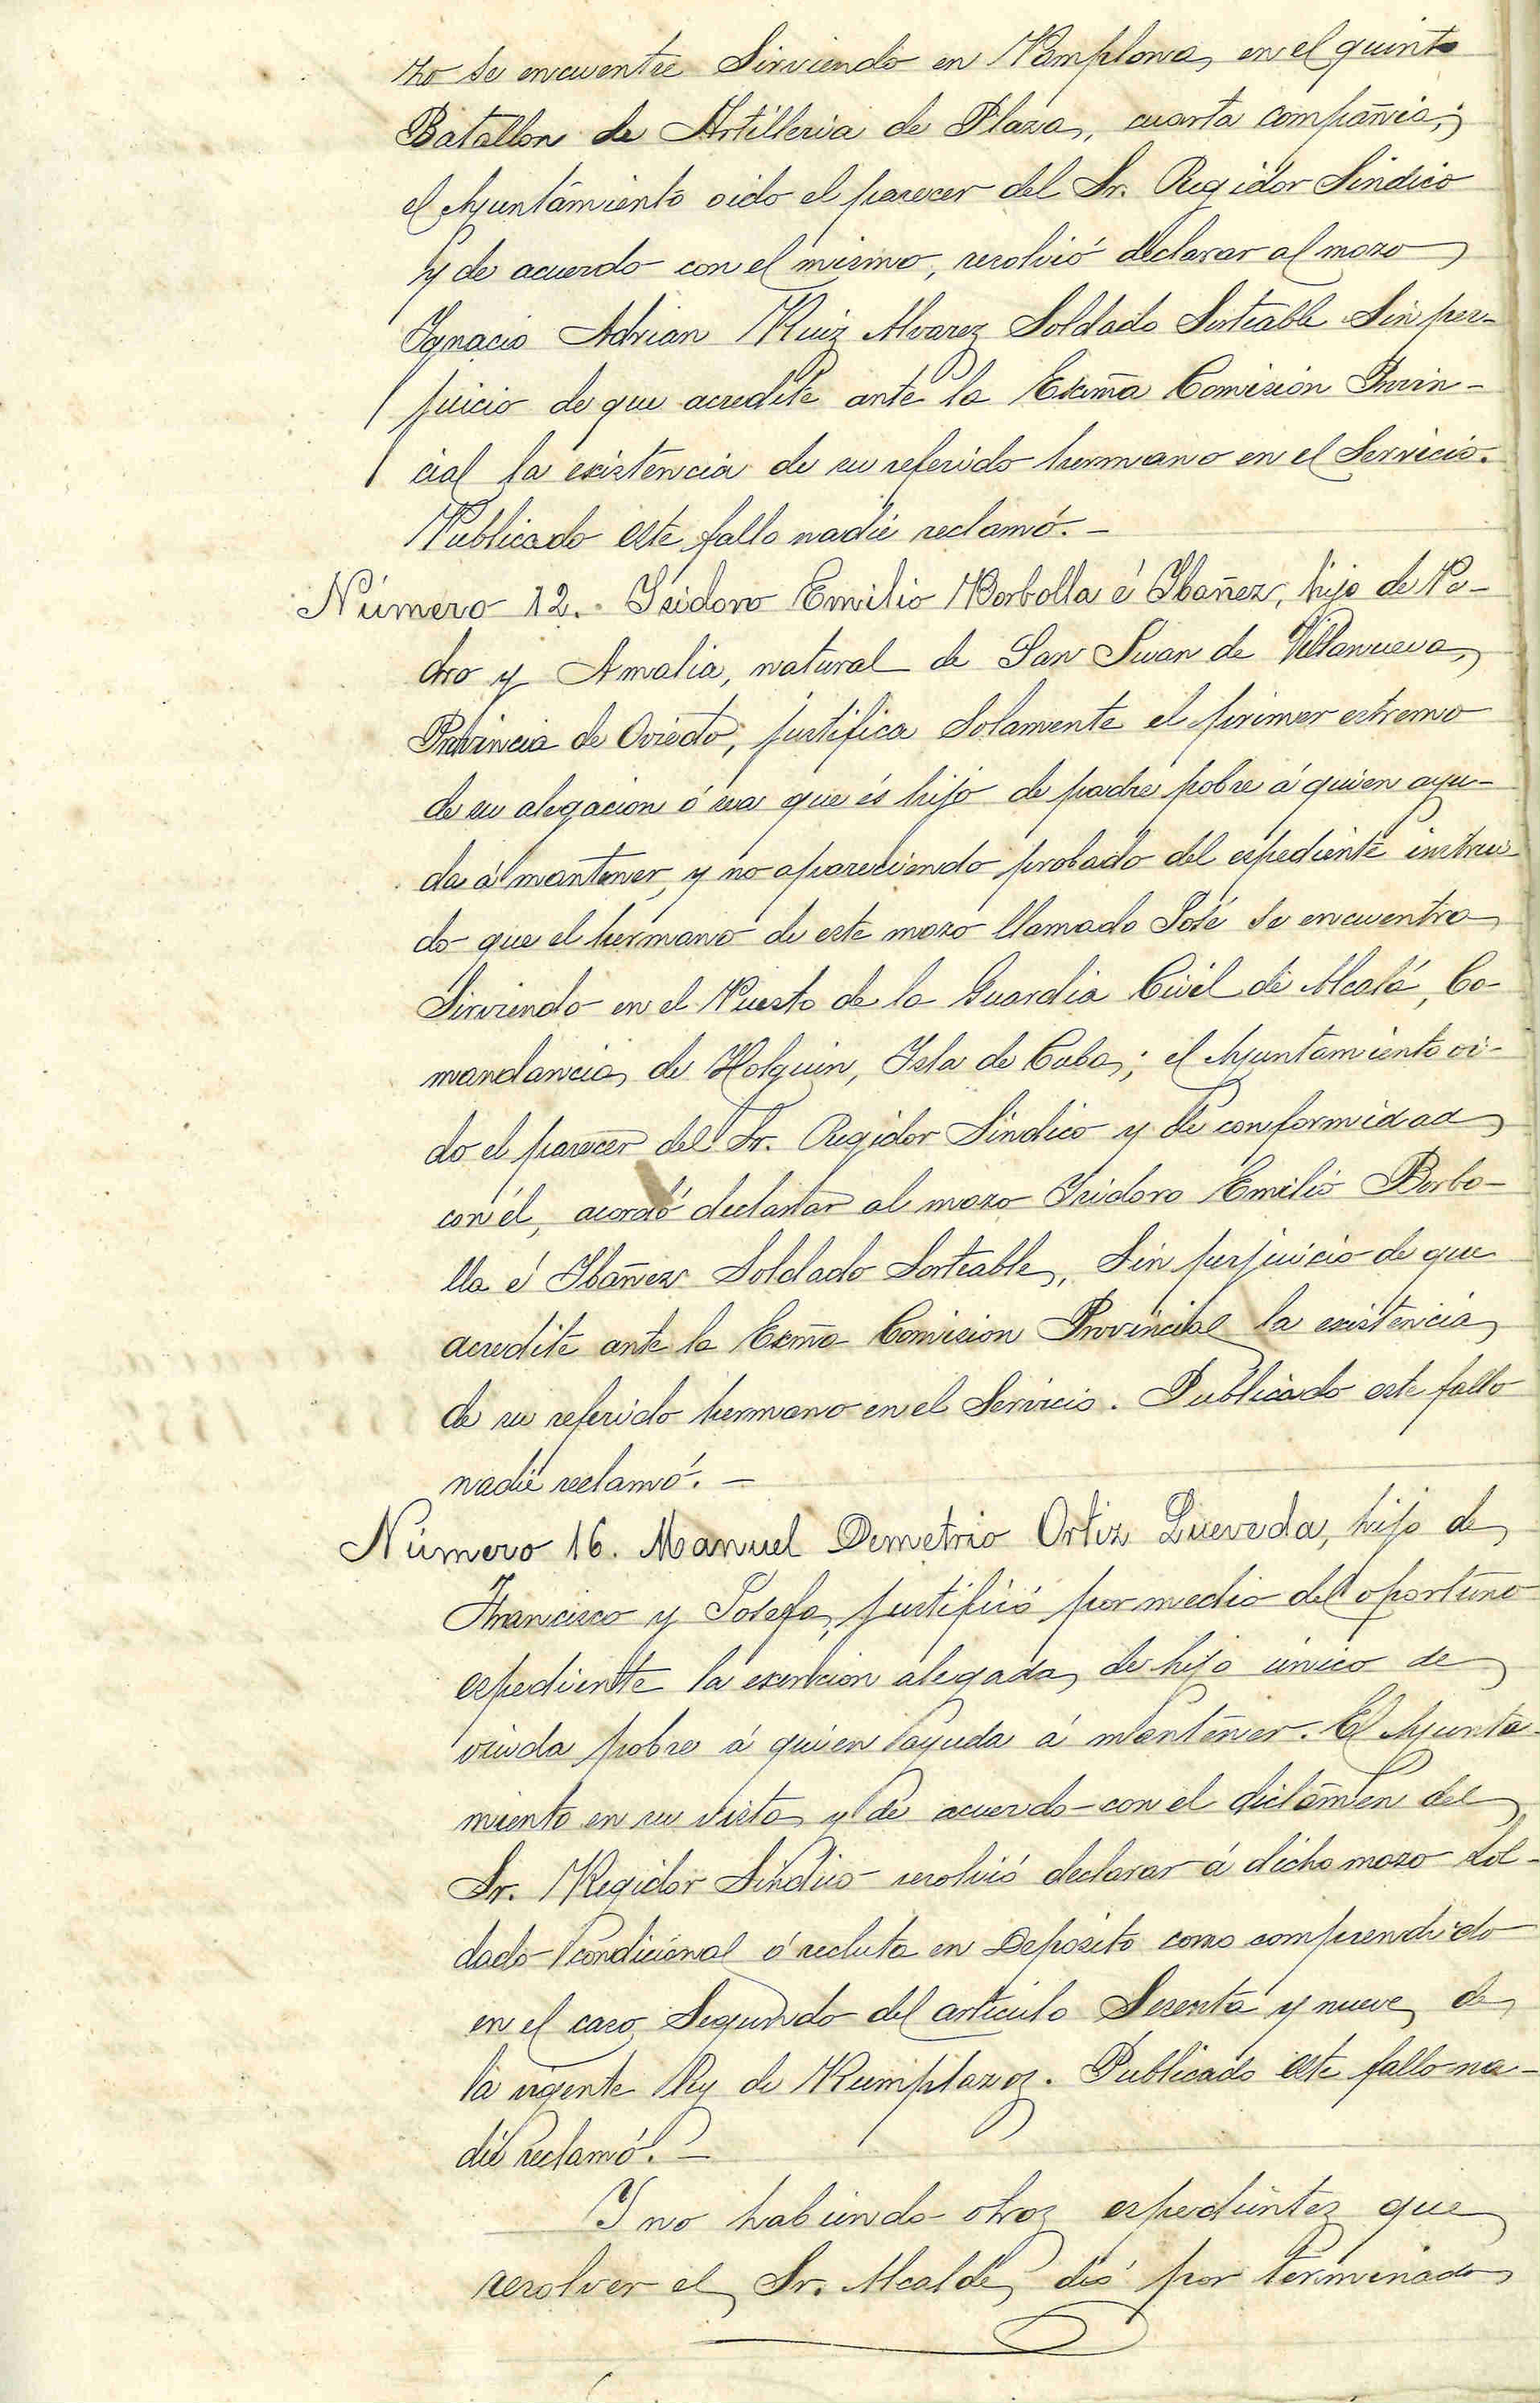 no se encuentre Sirviendo en Pamplona, en el quinto
Batallon de Artilleria de Plaza, cuarta compañia;
el Ayuntamiento oido el parecer del Sr. Regidor Sindico
y de acuerdo con el mismo, resolvió declarar al mozo
Ygnacio Adrian Ruiz Alvarez Soldado Sorteable Sin per-
juicio de que acredite ante la Excma Comisión Provin-
cial la existencia de su referido hermano en el Servicio.
Publicado este fallo nadie reclamó. -
Número 12. Isidoro Emilio Borbolla é Ibañez, hijo de Pe-
dro y Amalia, natural de San Juan de Villanueva,
Provincia de Oviedo, justifica Solamente el primer estremo
de su alegacion ó sea que és hijo de padre pobre á quien ayu-
da á mantener, y no apareciendo probado del espediente instrui-
do que el hermano de este mozo llamado José se encuentra
Sirviendo en el Puesto de la Guardia Civil de Alcalá, Co-
mandancia de Holguin, Isla de Cuba; el Ayuntamiento oi-
do el parecer del Sr. Regidor Sindico y de conformidad
con él, acordó declarar al mozo Isidoro Emilio Borbo-
lla é Ibañez Soldado Sorteable, Sin perjuicio de que
acredite ante la Excma Comision Provincial la existencia
de su referido hermano en el Servicio. Publicado este fallo
nadie reclamó. -
Número 16. Manuel Demetrio Ortiz Queveda, hijo de
Francisco y Josefa, justificó por medio del oportuno
espediente la exencion alegada, de hijo único de
viuda pobre á quien ayuda á mantener. El Ayunta-
miento en su vista y de acuerdo con el dictámen del
Sr. Regidor Sindico resolvió declarar á dicho mozo Sol-
dado Condicional ó recluta en Deposito como comprendido
en el caso Segundo del articulo Sesenta y nueve de
la vigente Ley de Remplazos. Publicado este fallo na-
die reclamó. -
Y no habiendo otros espedientes que
resolver el Sr. Alcalde, dió por terminado